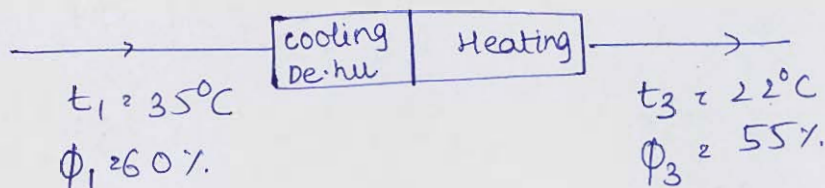 cooling
De.hu
Heating
t₁ = 35°C
ϕ₁ = 60 %.
t₃ = 22°C
ϕ₃ = 55 %.